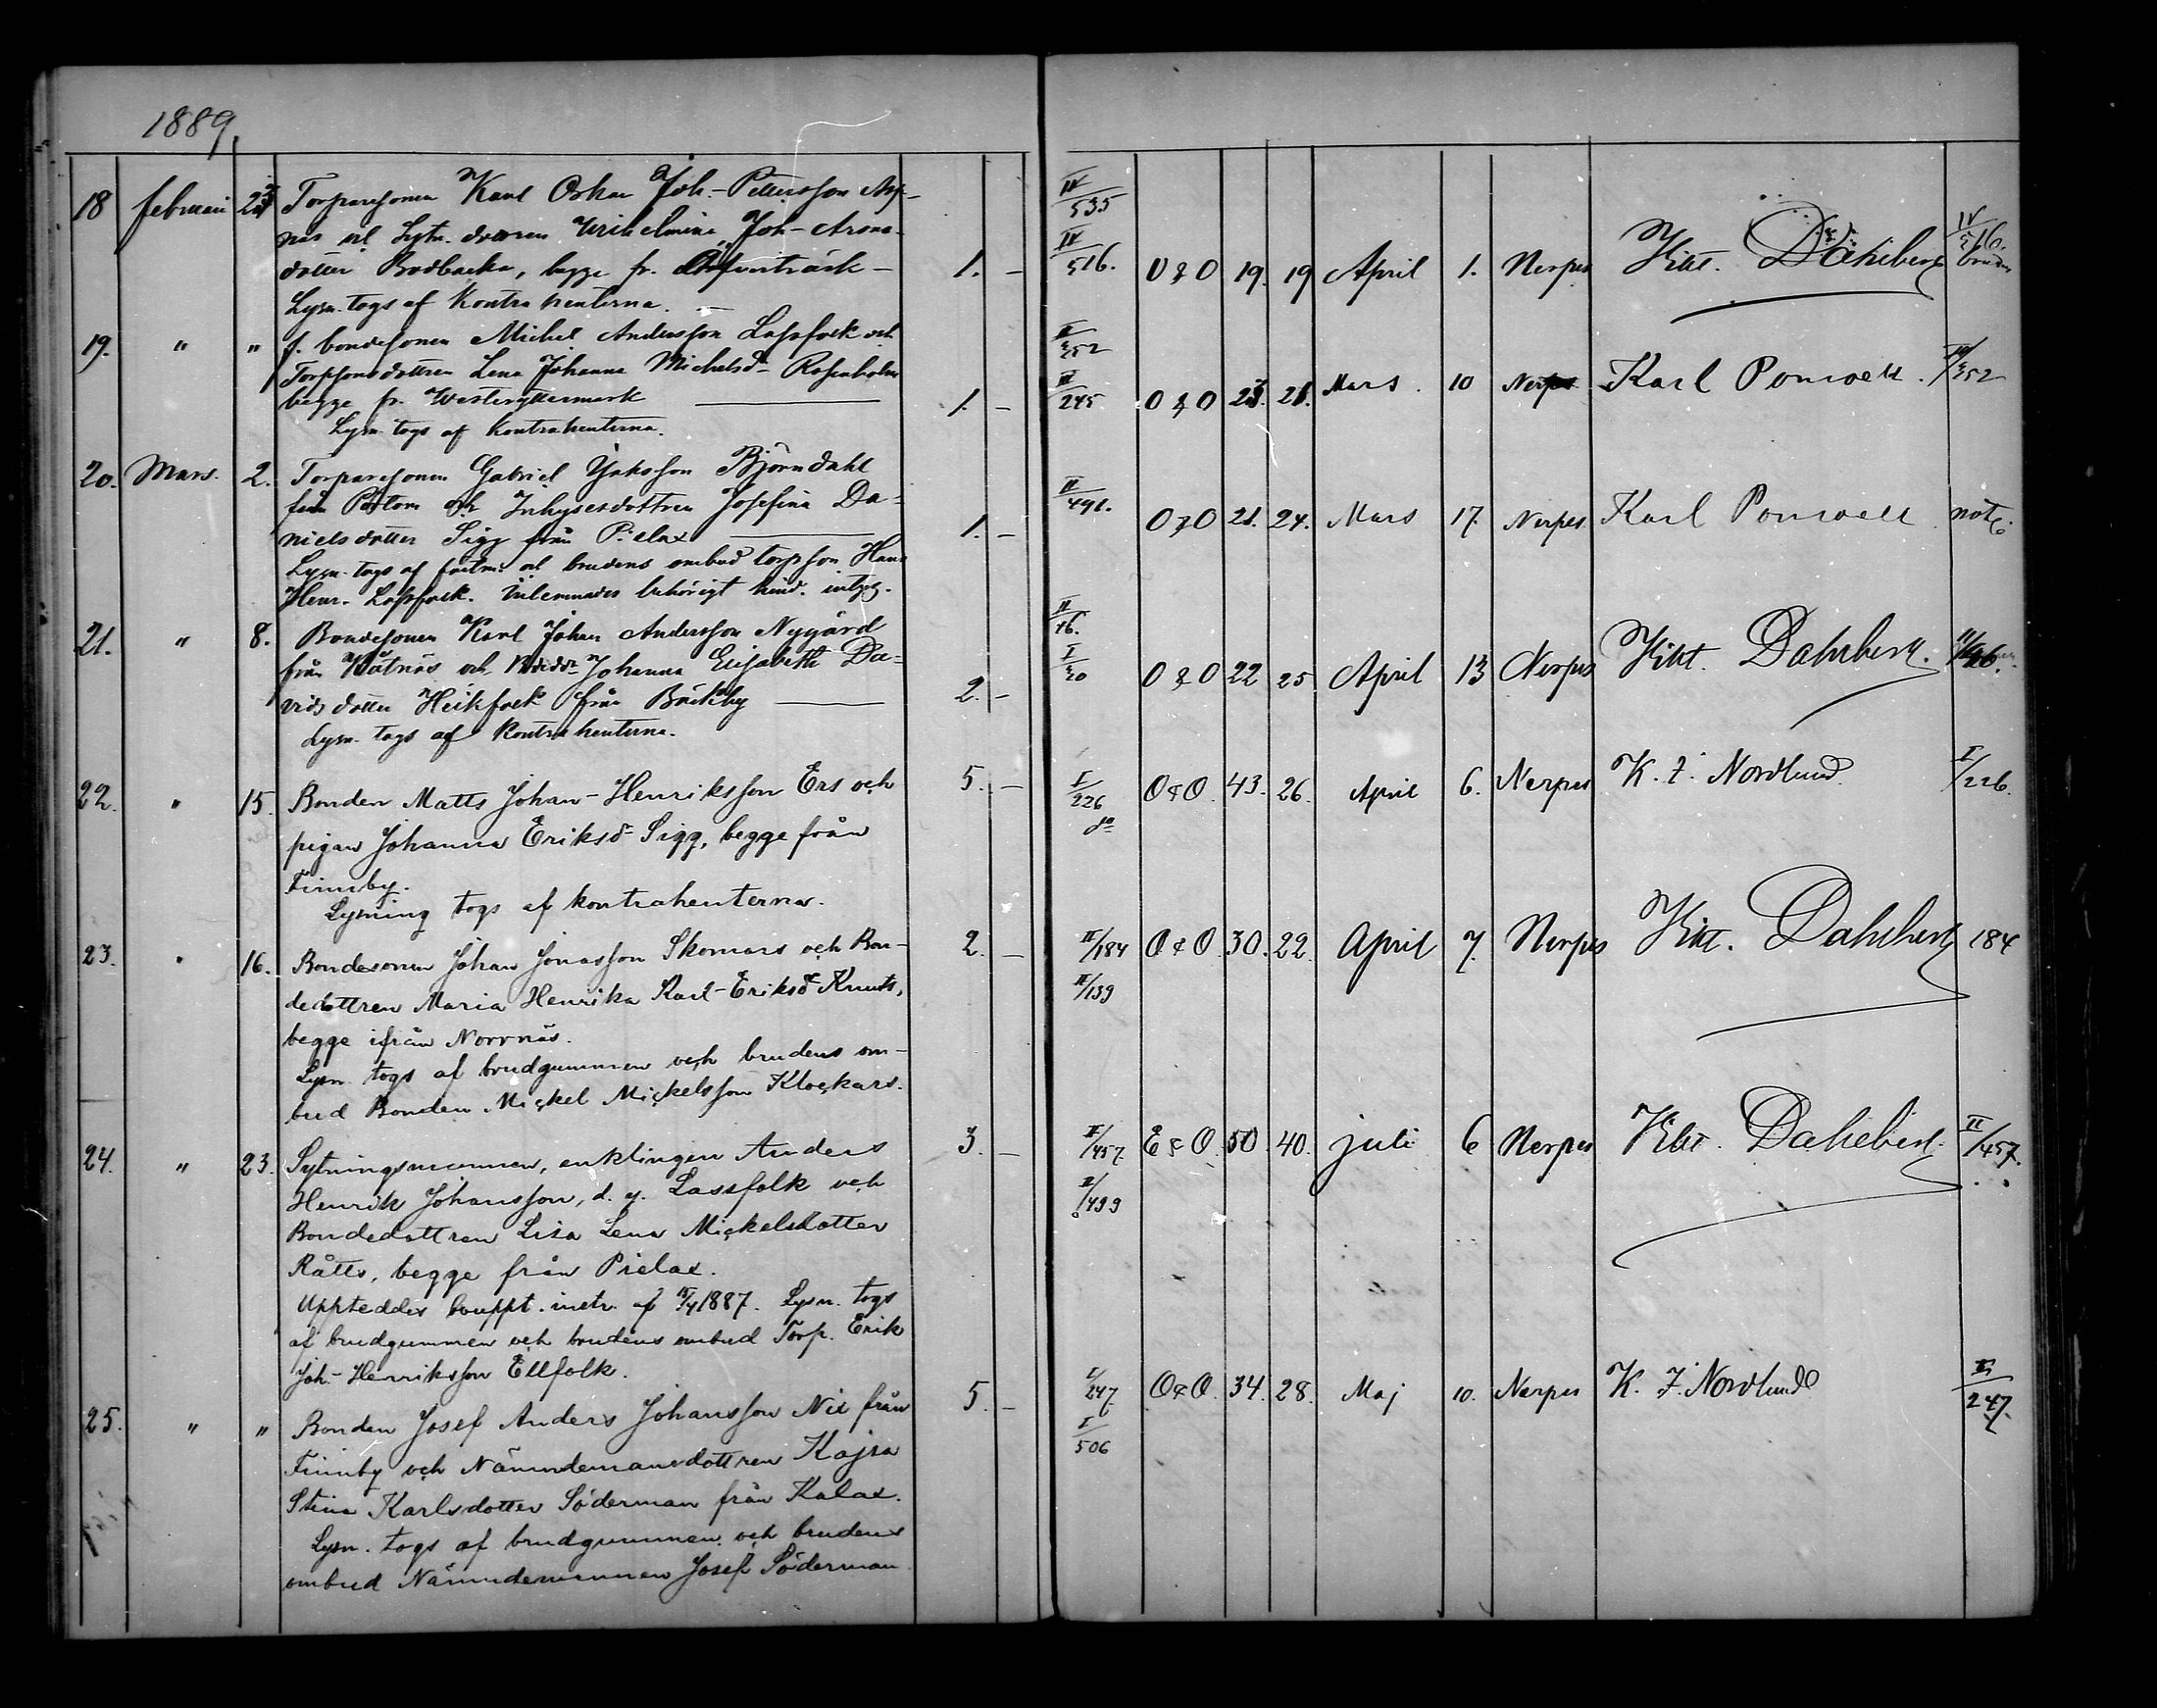 1889.
18 februari 23 Torparesonen Karl Oskar Joh.- Pettersson Asp-
näs och Sytn. dottren Wilhelmina Joh- Arons-
dotter Bodbacka, begge fr. Öfverträsk - 1. -
Lysn. togs af Kontrahenterna. -
19. " " f. bondesonen Michel Andersson Lassfolk och
Torpsonsdottren Lena Johanna Michelsd- Rosenholm
begge fr. Westeryttermark 1. -
Lysn. togs af Kontrahenterna.
20. Mars. 2. Torparesonen Gabriel Jaksson Björndahl
från Pörtom och Inhysesdottren Josefina Da-
nielsdotter Sigg från Pielax 1. -
Lysn. togs af fästm. och brudens ombud torpson Hans
Henr. Lassfolk. Inlemnades behörigt hind. intyg.
21. " 8. Bondesonen Karl Johan Andersson Nygård
från Nåtnäs och Johanna Elisabeth Da-
vidsdotter Heikfolk från Bäckby 2. -
Lysn. togs af kontrahenterna.
22. " 15. Bonden Matts Johan-Henriksson Ers och 5. -
pigan Johanna Eriksd- Sigg, begge från
Finnby.
Lysning togs af kontrahenterna.
23. " 16. Bondesonen Johan Jonasson Skomars och Bon- 2. -
dedottren Maria Henrika Karl-Eriksd- Knuts,
begge ifrån Norrnäs.
Lysn. togs af brudgummen och brudens om-
bud Bonden Mickel Mickelsson Klockars.
24. " 23. Sytningsmannen, enklingen Anders 3. -
Henrik Johansson, d. y. Lassfolk och
Bondedottren Lisa Lena Mickelsdotter
Råtts, begge från Pielax.
Uppteddes bouppt. instr. af 1887. Lysn. togs
af brudgummen och brudens ombud Torp. Erik
Joh.- Henriksson Ellfolk.
25. " " Bonden Josef Anders Johansson Nix från 5. -
Finnby och Nämndemansdottren Kajsa
Stina Karlsdotter Söderman från Kalax.
Lysn. togs af brudgummen och brudens
ombud Nämndemannen Josef Söderman
IV/535
IV/516. O & O 19. 19 April 1. Nerpes Vikt. Dahlberg IV/516. bruden
II/352
III/245 O & O 23. 21. Mars. 10 Nerpes Karl Ponwell.
II/491. O & O 21. 24. Mars 17. Nerpes Karl Ponwell not.
II/46.
I/20 O & O 22 25 April 13 Nerpes Vikt. Dahlberg. II/46.
I/226 O & O. 43. 26. April 6. Nerpes K. J. Nordlund I/226.
do
II/184 O & O. 30. 22. April 7. Nerpes Vikt. Dahlberg 184
II/139
II/457. E & O. 50. 40. juli 6 Nerpes Vikt. Dahlberg. II/457.
II/499
I/247. O & O. 34. 28. Maj 10. Nerpes K. J. Nordlund I/247.
I/506